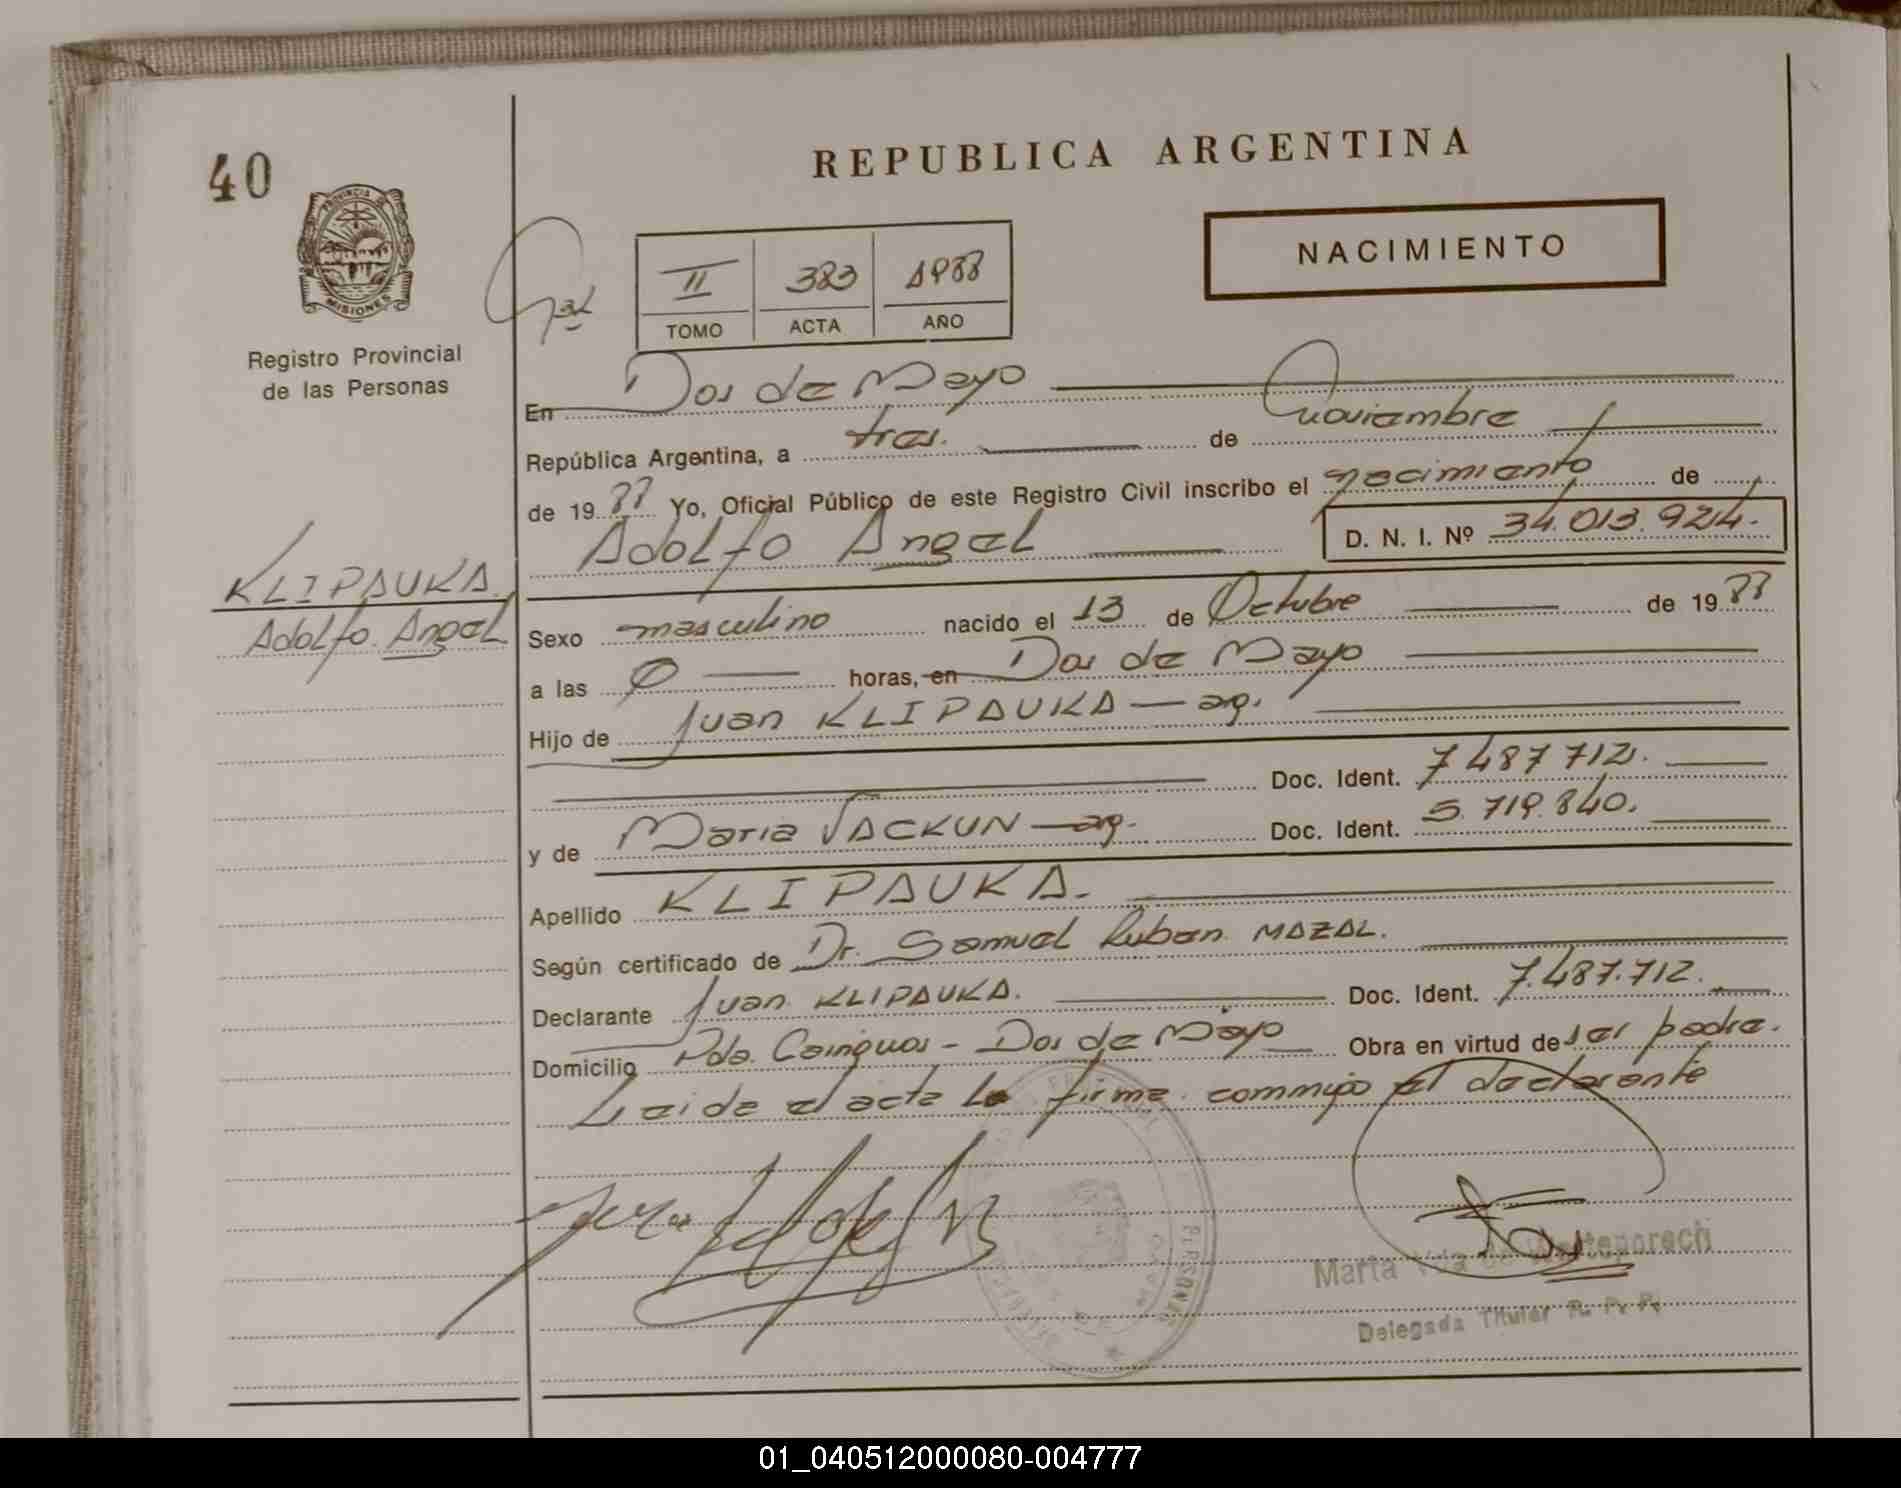 40
REPUBLICA ARGENTINA
PROVINCIA DE
MISIONES
Registro Provincial
de las Personas
II 383 1988
TOMO ACTA AÑO
NACIMIENTO
En Dos de Mayo
República Argentina, a tres. de noviembre
de 1988 Yo, Oficial Público de este Registro Civil inscribo el nacimiento de
Adolfo Angel D. N. I. Nº 34.013.924.
KLIPAUKA.
Adolfo Angel
Sexo masculino nacido el 13 de Octubre de 1988
a las 0 horas, en Dos de Mayo
Hijo de Juan KLIPAUKA — ag.
Doc. Ident. 7487712.
y de Maria JACKUN — ag. Doc. Ident. 5.719.840.
Apellido KLIPAUKA.
Según certificado de Dr. Samuel Ruben MAZAL.
Declarante Juan KLIPAUKA. Doc. Ident. 7.487.712.
Domicilio Pdo. Cainguas - Dos de Mayo Obra en virtud de ser padre.
Leida el acta la firma conmigo el declarante
Marta Vda de
Delegada Titular R. P. P.
01_040512000080-004777